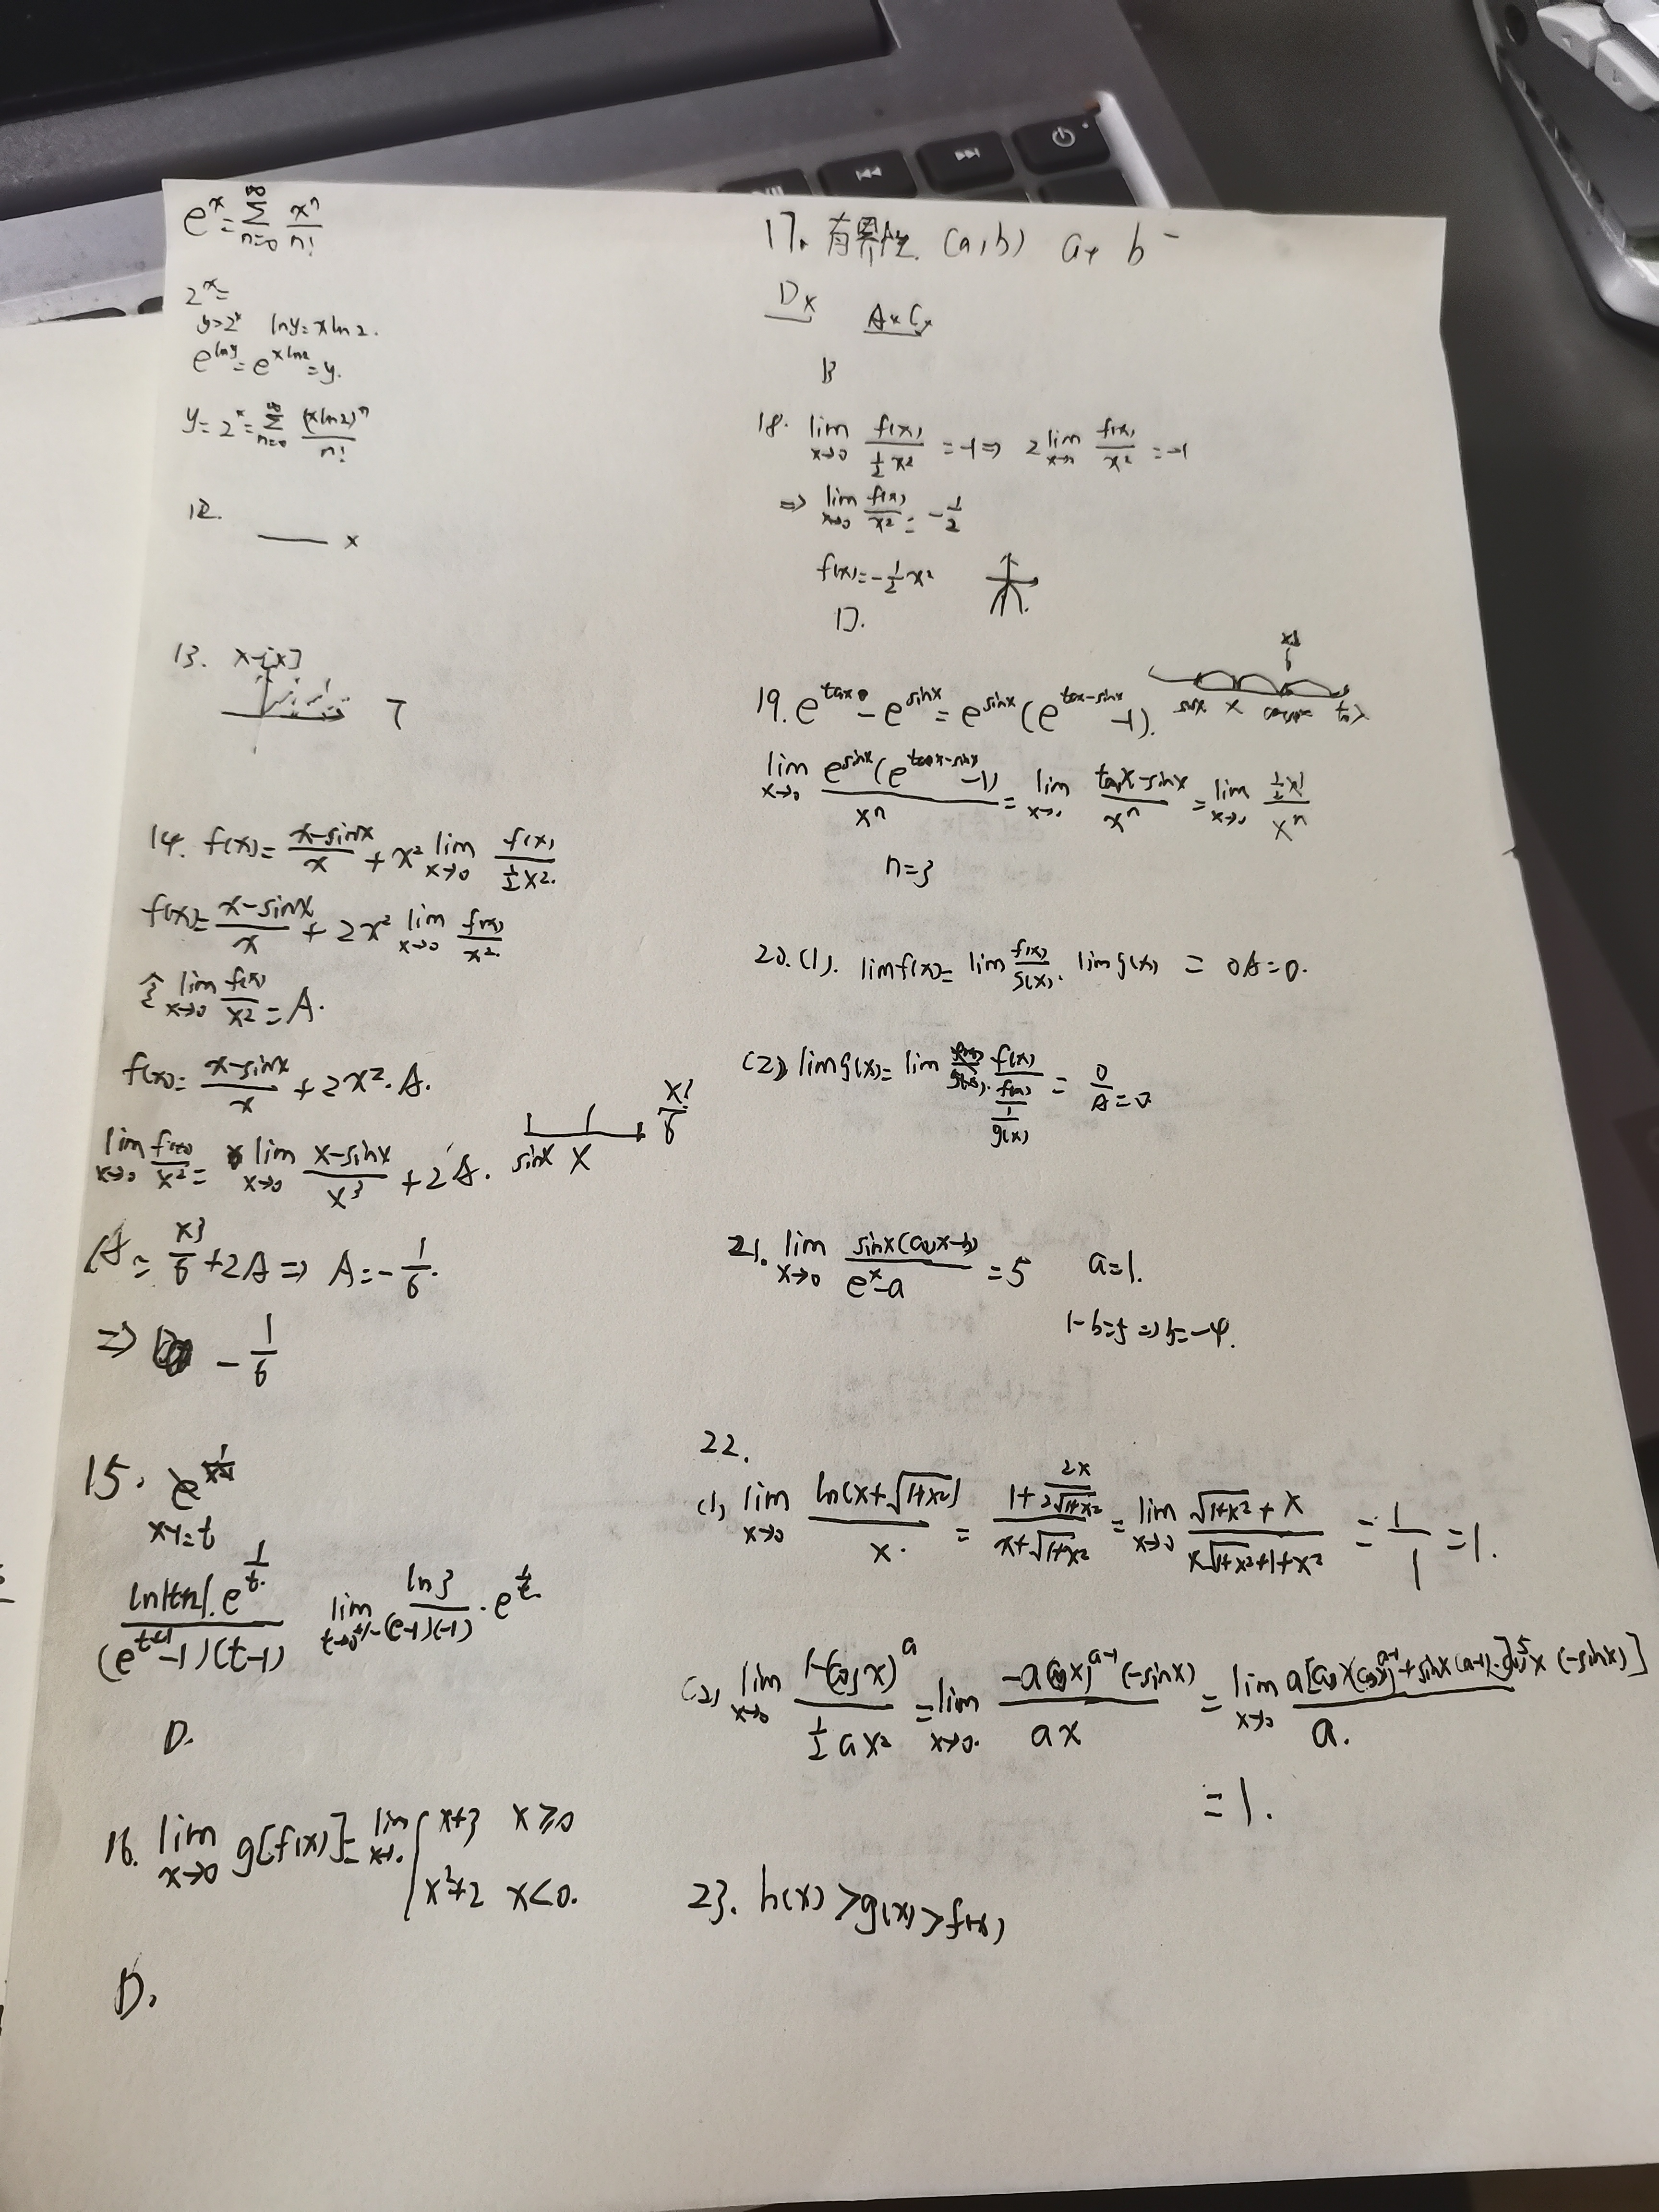 e^x = ∑_{n=0}^{∞} x^n/n!
2^x =
y=2^x lny=xln2.
e^{lny}=e^{xln2}=y.
y=2^x=∑_{n=0}^{∞} (xln2)^n/n!
12. ___ x
13. x-[x]
14. f(x)= (x-sinx)/x + x² lim_{x→0} f(x)/(½x²).
f(x)= (x-sinx)/x + 2x² lim_{x→0} f(x)/x².
令 lim_{x→0} f(x)/x² = A.
f(x)= (x-sinx)/x + 2x²·A.
lim_{x→0} f(x)/x² = lim_{x→0} (x-sinx)/x³ + 2A. sinx x x³/6
A = x³/6 + 2A ⇒ A=-1/6.
⇒ -1/6
15.
x-1=t
(e^{t+1}-1)(t-1)
D.
16. lim_{x→0} g[f(x)] = lim_{x→0} { x+3 x≥0
x²+2 x<0.
D.
17. 有界性. (a,b) a+ b-
D× A×C×
B
18. lim_{x→0} f(x)/(½x²) = -1 ⇒ 2 lim_{x→0} f(x)/x² = -1
⇒ lim_{x→0} f(x)/x² = -1/2
f(x)=-½x²
D.
19. e^{tanx} - e^{sinx} = e^{sinx}(e^{tanx-sinx}-1). sinx x tanx
lim_{x→0} e^{sinx}(e^{tanx-sinx}-1)/x^n = lim_{x→0} (tanx-sinx)/x^n = lim_{x→0} ½x³/x^n
n=3
20. (1). limf(x)= lim f(x)/g(x). limg(x) = 0A=0.
(2) limg(x)= lim f(x)/(f(x)/g(x)) = 0/A=0
21. lim_{x→0} sinx(cosx-b)/(e^x-a) = 5 a=1.
1-b=5 ⇒ b=-4.
22.
(1) lim_{x→0} ln(x+√(1+x²))/x. = (1+2x/(2√(1+x²)))/(x+√(1+x²)) = lim_{x→0} (√(1+x²)+x)/(x√(1+x²)+1+x²) = 1/1 =1.
(2) lim_{x→0} (1-(cosx)^a)/(½ax²) = lim_{x→0} -a(cosx)^{a-1}(-sinx)/(ax) = lim_{x→0}
=1.
23. h(x)>g(x)>f(x)